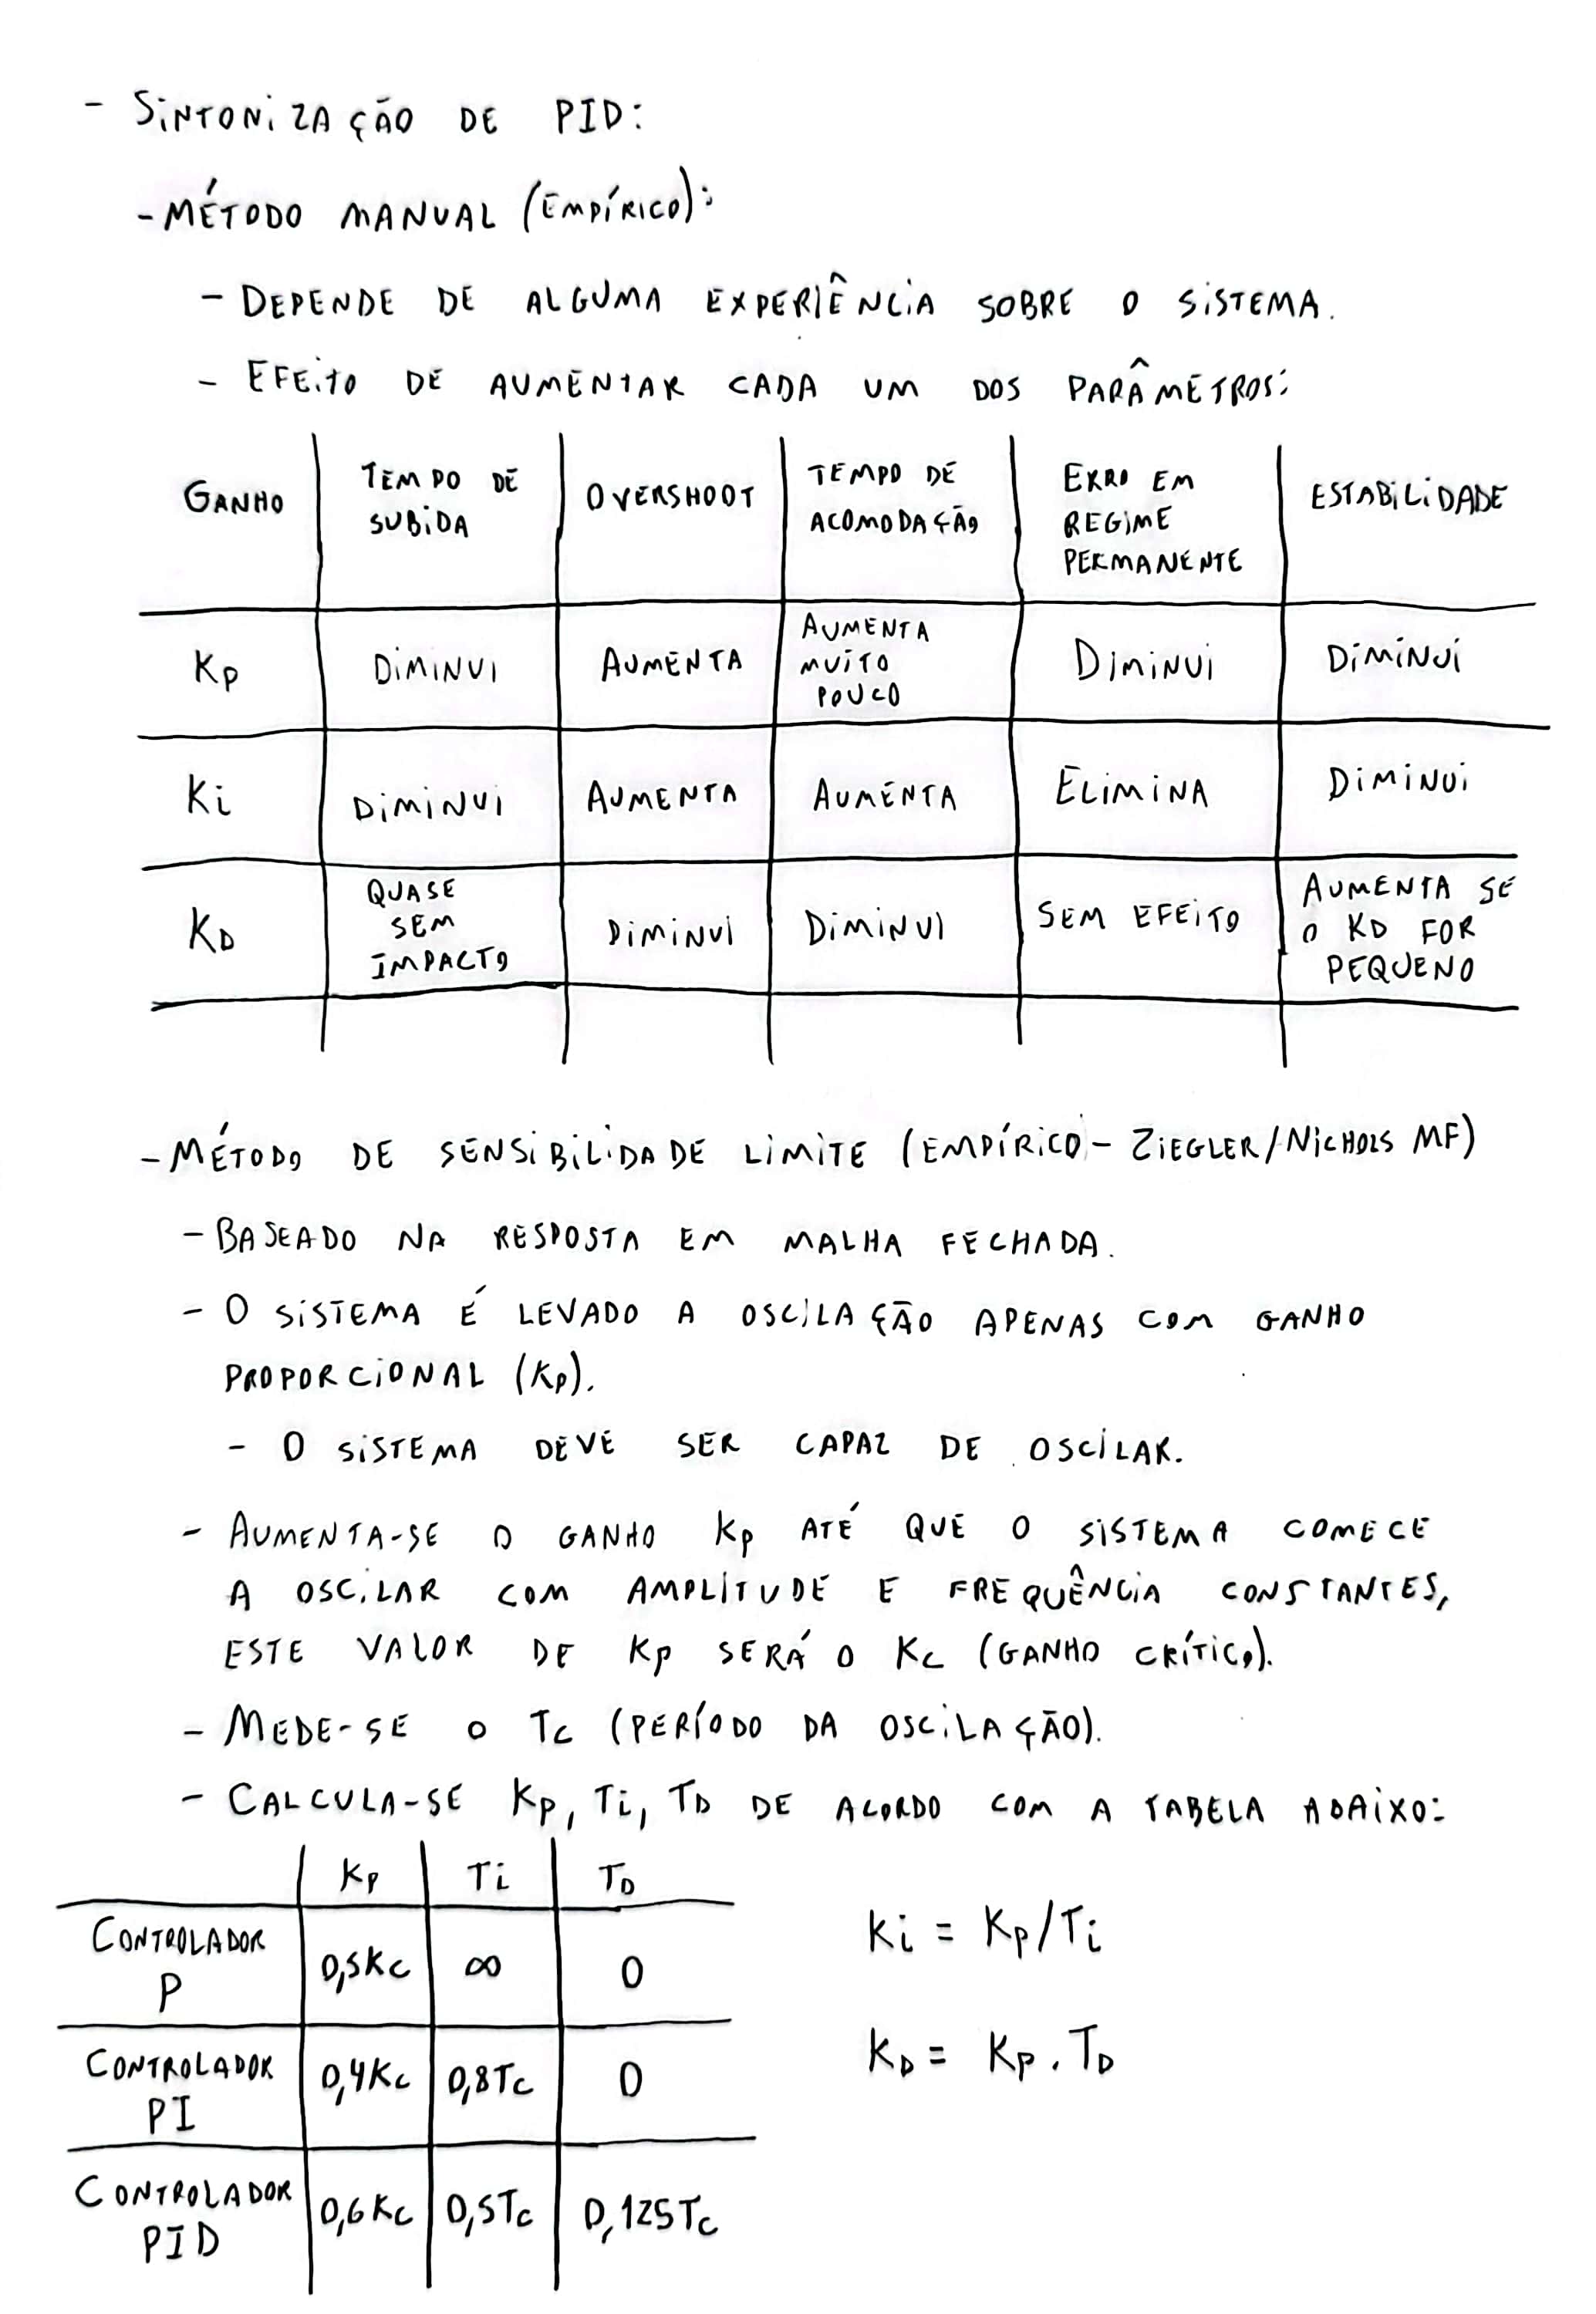 - SINTONIZAÇÃO DE PID:
- MÉTODO MANUAL (EMPÍRICO):
- DEPENDE DE ALGUMA EXPERIÊNCIA SOBRE O SISTEMA.
- EFEITO DE AUMENTAR CADA UM DOS PARÂMETROS:
GANHO | TEMPO DE SUBIDA | OVERSHOOT | TEMPO DE ACOMODAÇÃO | ERRO EM REGIME PERMANENTE | ESTABILIDADE
Kp | DIMINUI | AUMENTA | AUMENTA MUITO POUCO | DIMINUI | DIMINUI
Ki | DIMINUI | AUMENTA | AUMENTA | ELIMINA | DIMINUI
KD | QUASE SEM IMPACTO | DIMINUI | DIMINUI | SEM EFEITO | AUMENTA SE O KD FOR PEQUENO
- MÉTODO DE SENSIBILIDADE LIMITE (EMPÍRICO - ZIEGLER/NICHOLS MF)
- BASEADO NA RESPOSTA EM MALHA FECHADA.
- O SISTEMA É LEVADO A OSCILAÇÃO APENAS COM GANHO
PROPORCIONAL (Kp).
- O SISTEMA DEVE SER CAPAZ DE OSCILAR.
- AUMENTA-SE O GANHO Kp ATÉ QUE O SISTEMA COMECE
A OSCILAR COM AMPLITUDE E FREQUÊNCIA CONSTANTES,
ESTE VALOR DE Kp SERÁ O Kc (GANHO CRÍTICO).
- MEDE-SE O Tc (PERÍODO DA OSCILAÇÃO).
- CALCULA-SE Kp, Ti, TD DE ACORDO COM A TABELA ABAIXO:
Kp | Ti | TD
CONTROLADOR P | 0,5Kc | ∞ | 0
CONTROLADOR PI | 0,4Kc | 0,8Tc | 0
CONTROLADOR PID | 0,6Kc | 0,5Tc | 0,125Tc
Ki = Kp/Ti
KD = Kp . TD